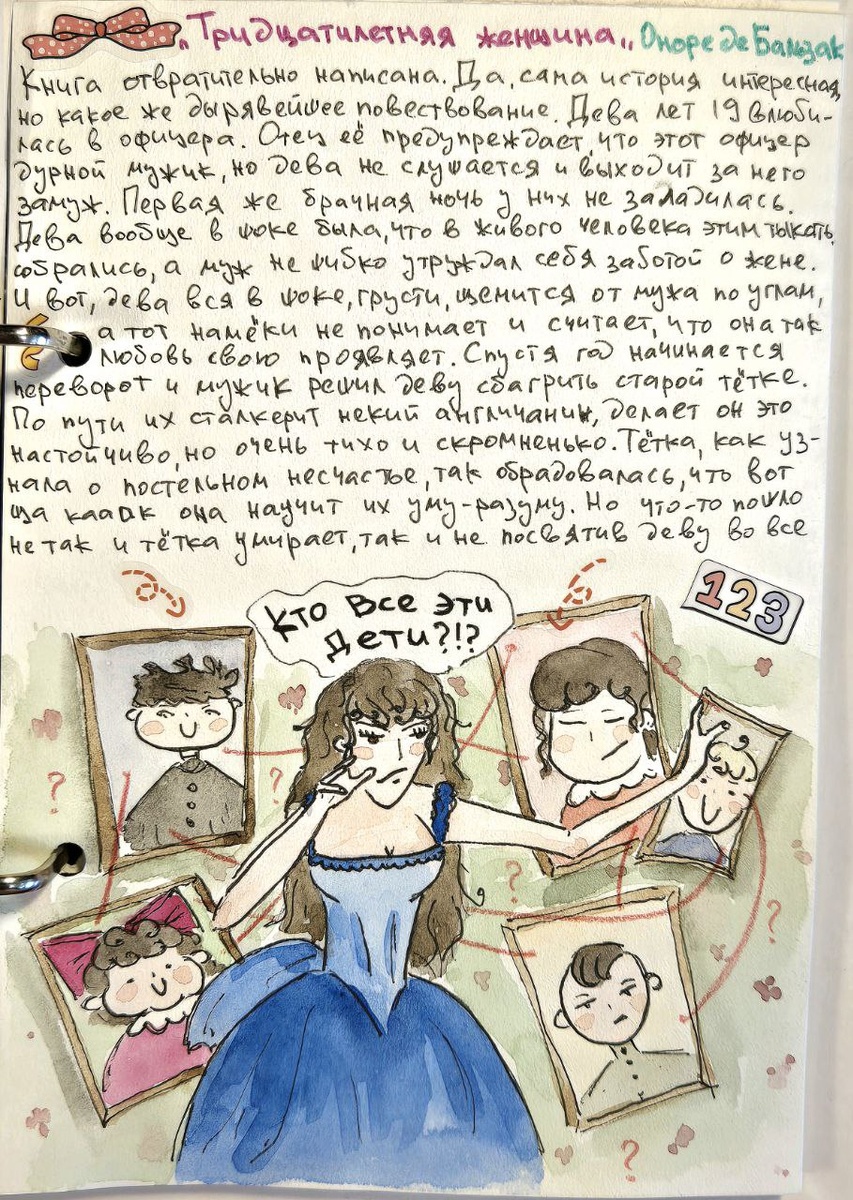 „Тридцатилетняя женщина„ Оноре де Бальзак
Книга отвратительно написана. Да, сама история интересная,
но какое же дырявейшее повествование. Дева лет 19 влюби-
лась в офицера. Отец её предупреждает, что этот офицер
дурной мужик, но дева не слушается и выходит за него
замуж. Первая же брачная ночь у них не заладилась.
Дева вообще в шоке была, что в живого человека этим тыкать
собрались, а муж не шибко утруждал себя заботой о жене.
И вот, дева вся в шоке, грусти, щемится от мужа по углам,
а тот намёки не понимает и считает, что она так
любовь свою проявляет. Спустя год начинается
переворот и мужик решил деву сбагрить старой тётке.
По пути их сталкерит некий англичанин, делает он это
настойчиво, но очень тихо и скромненько. Тётка, как уз-
нала о постельном несчастье, так обрадовалась, что вот
ща кааак она научит их уму-разуму. Но что-то пошло
не так и тётка умирает, так и не посвятив деву во все
Кто все эти
дети?!?
123
?
?
?
?
?